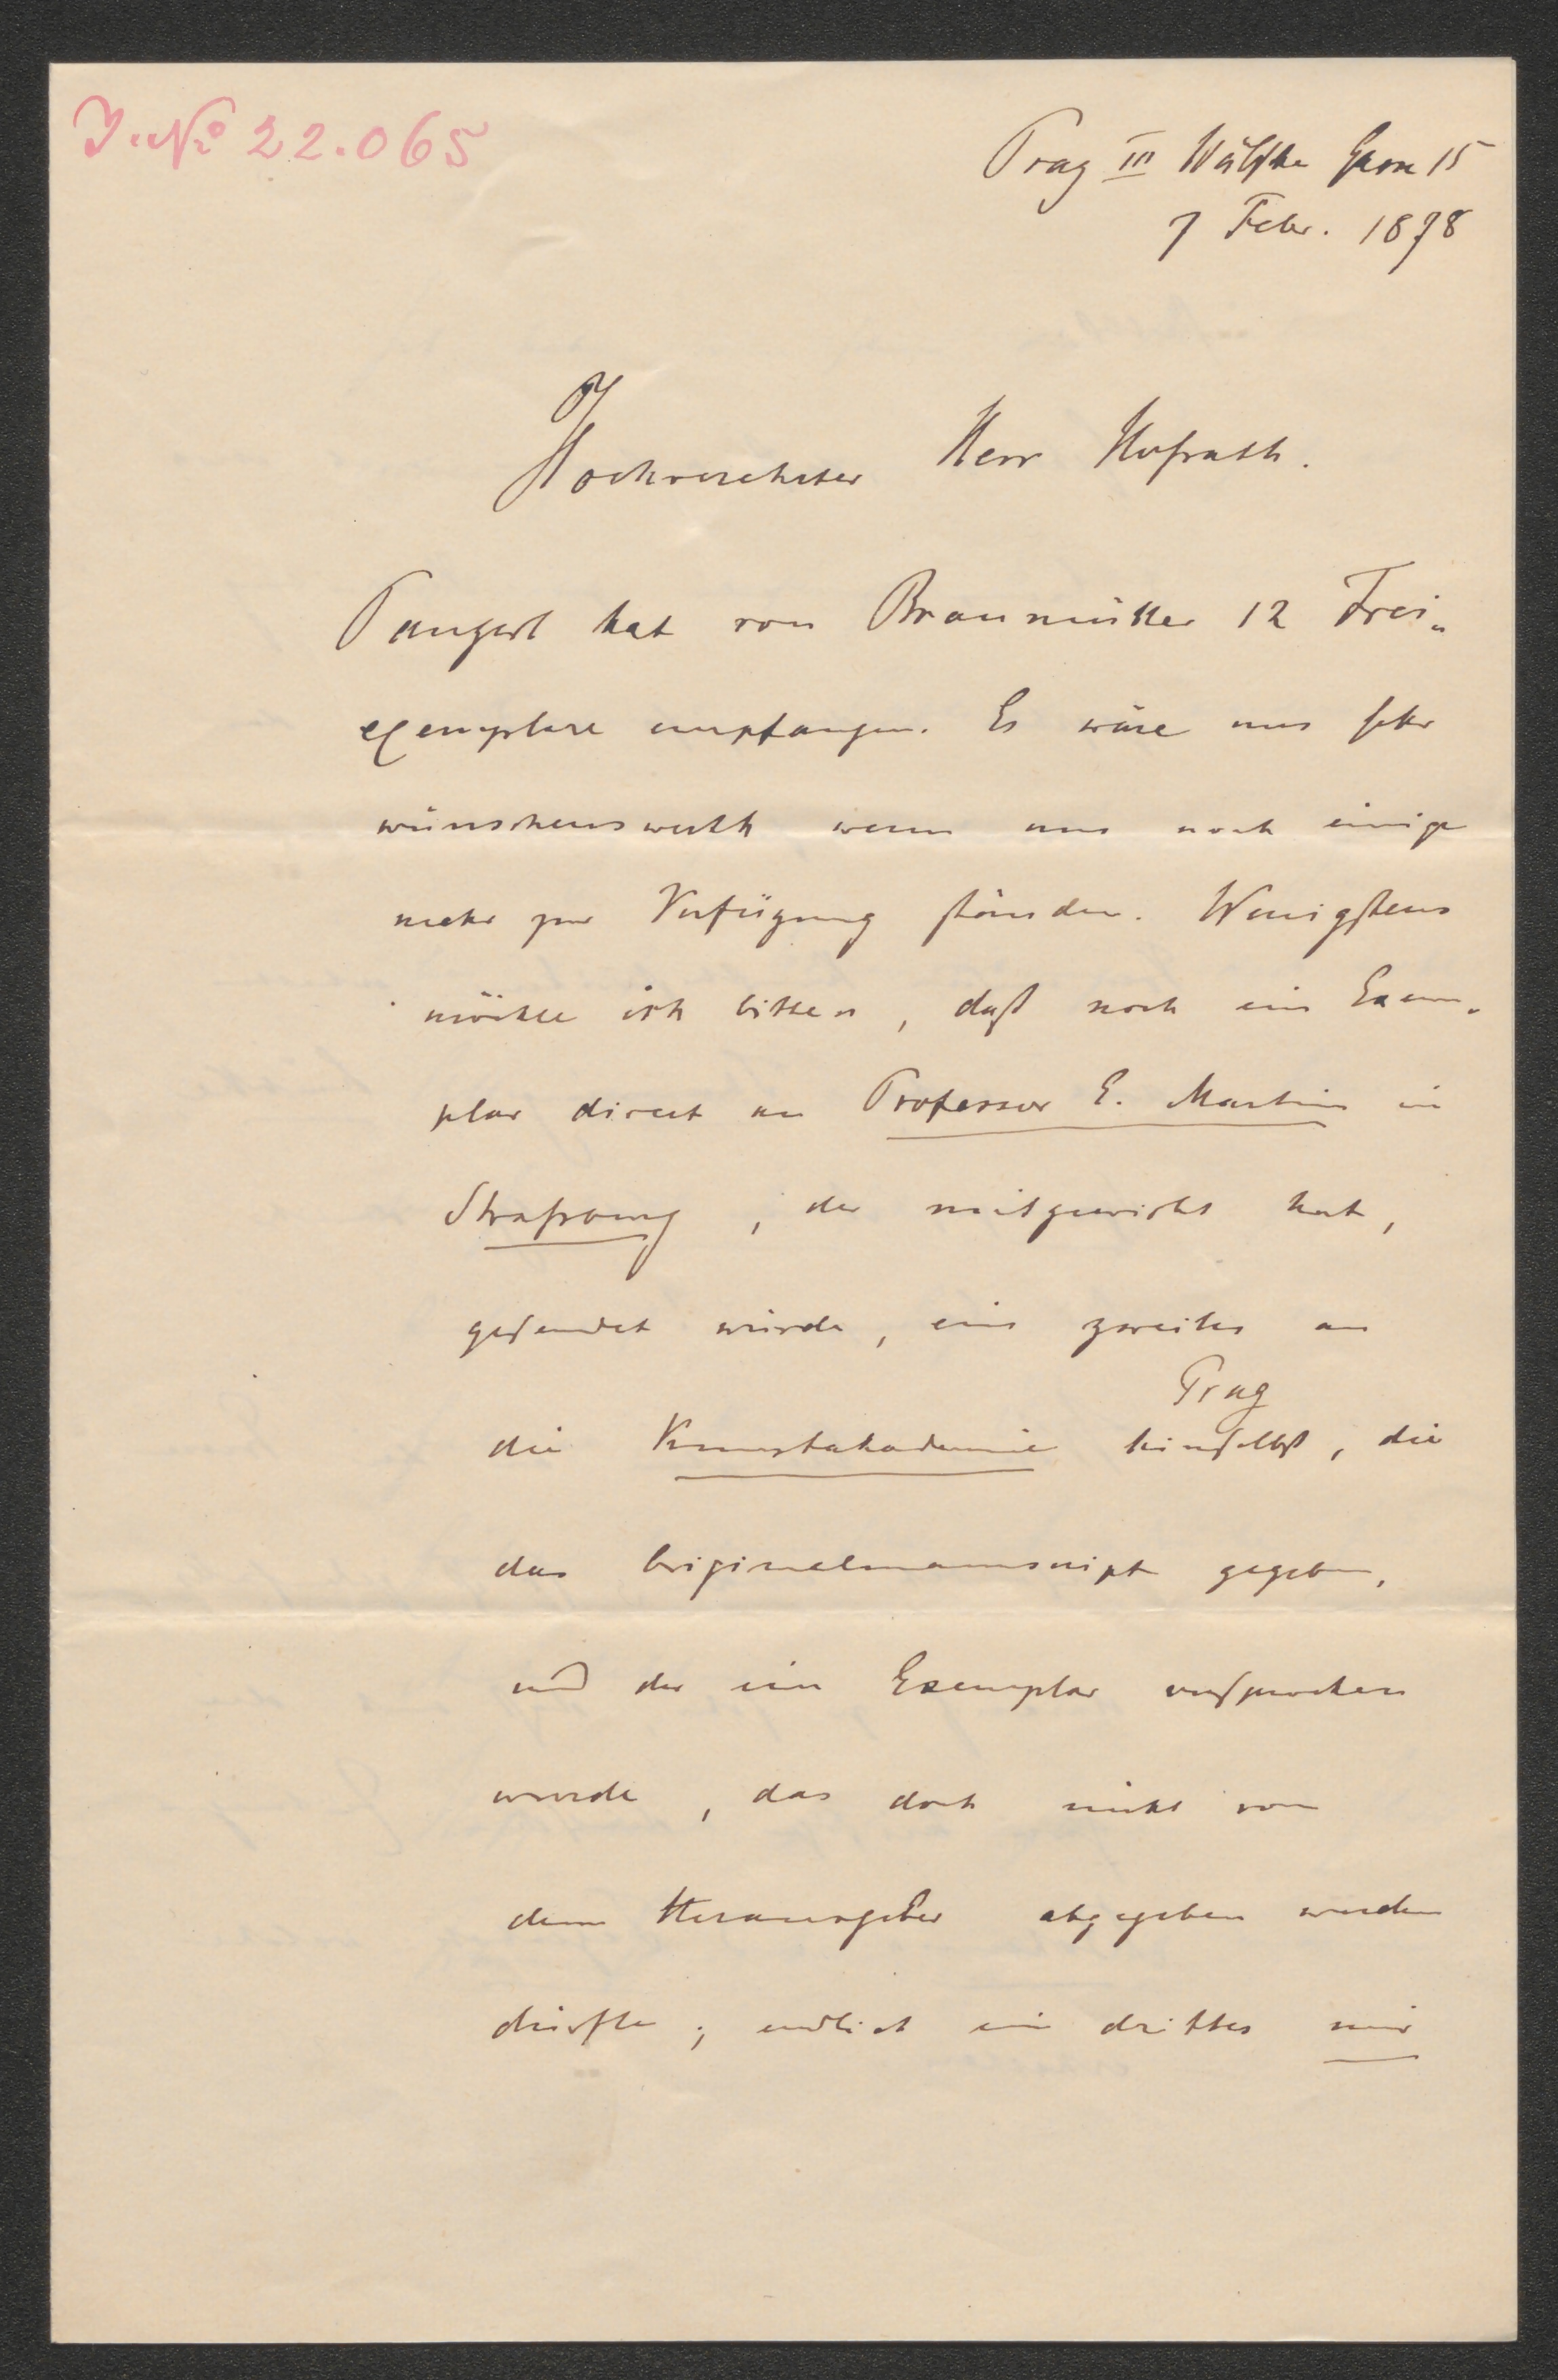 J. No 22.065
Prag III Wälsche Gasse 15
7 Febr. 1878
Hochverehrter Herr Hofrath.
Pangerl hat von Braumüller 12 Frei-
exemplare empfangen. Es wäre uns sehr
wünschenswerth wenn uns noch einige
mehr zur Verfügung ständen. Wenigstens
möchte ich bitten, daß noch ein Exem-
plar direct an Professor E. Martin in
Straßburg, der mitgewirkt hat,
gesendet würde, ein zweites an
Prag
die Kunstakademie hierselbst, die
das Originalmanuscript gegeben,
und der ein Exemplar versprochen
wurde, das doch nicht von
dem Herausgeber abgegeben werden
dürfte; endlich ein drittes mir